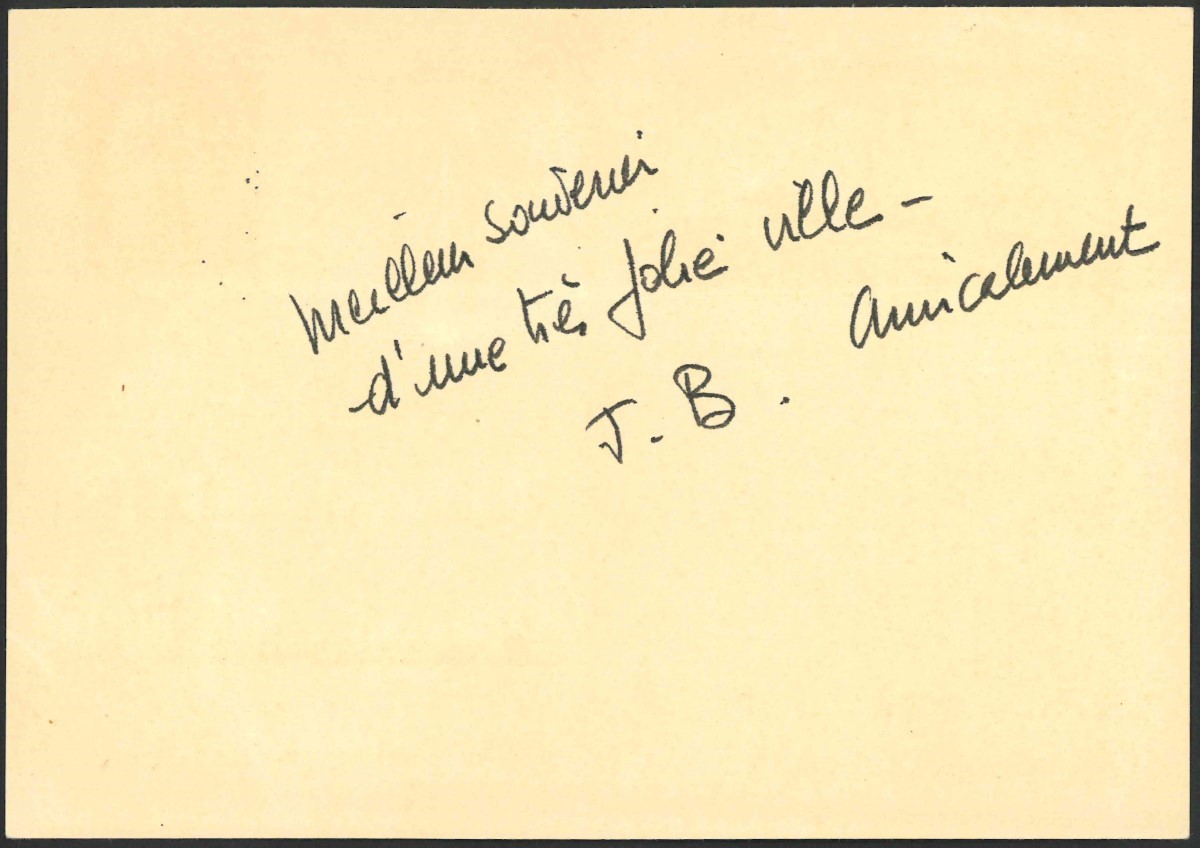 Meilleur souvenir
d'une très jolie ville -
Amicalement
J. B.